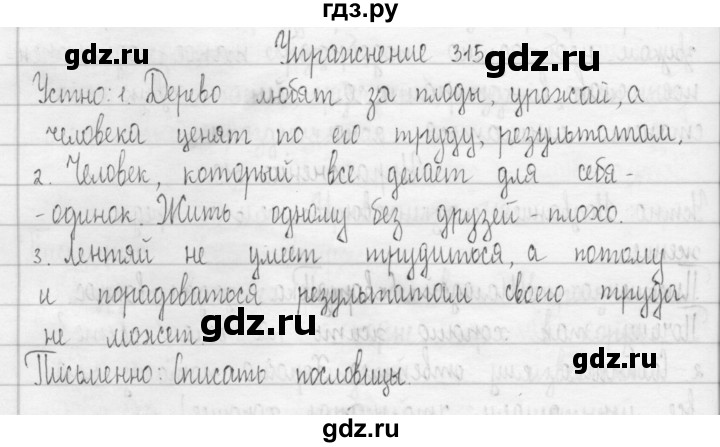 гдз.ру
Упражнение 315
Устно: 1. Дерево любят за плоды, урожай, а
человека ценят по его труду, результатам.
2. Человек, который все делает для себя -
- одинок. Жить одному без друзей - плохо.
3. Лентяй не умеет трудиться, а потому
и порадоваться результатам своего труда
не может
Письменно: Списать пословицы.
gdz.ru
gdz.ru
gdz.ru
gdz.ru
gdz.ru